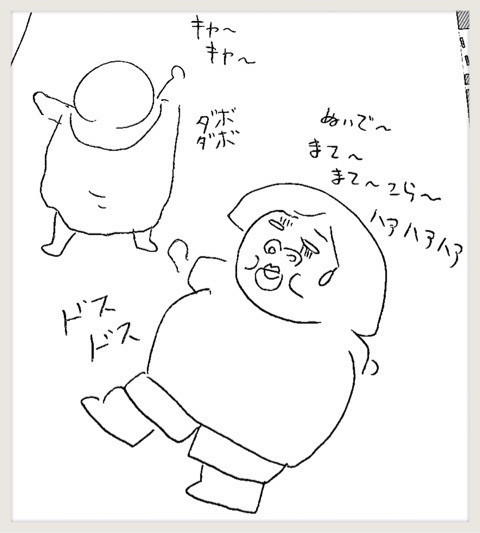 キャ〜
キャ〜
ダボ
ダボ
ぬいで〜
まて〜
まて〜こら〜
ハアハアハア
ドス
ドス